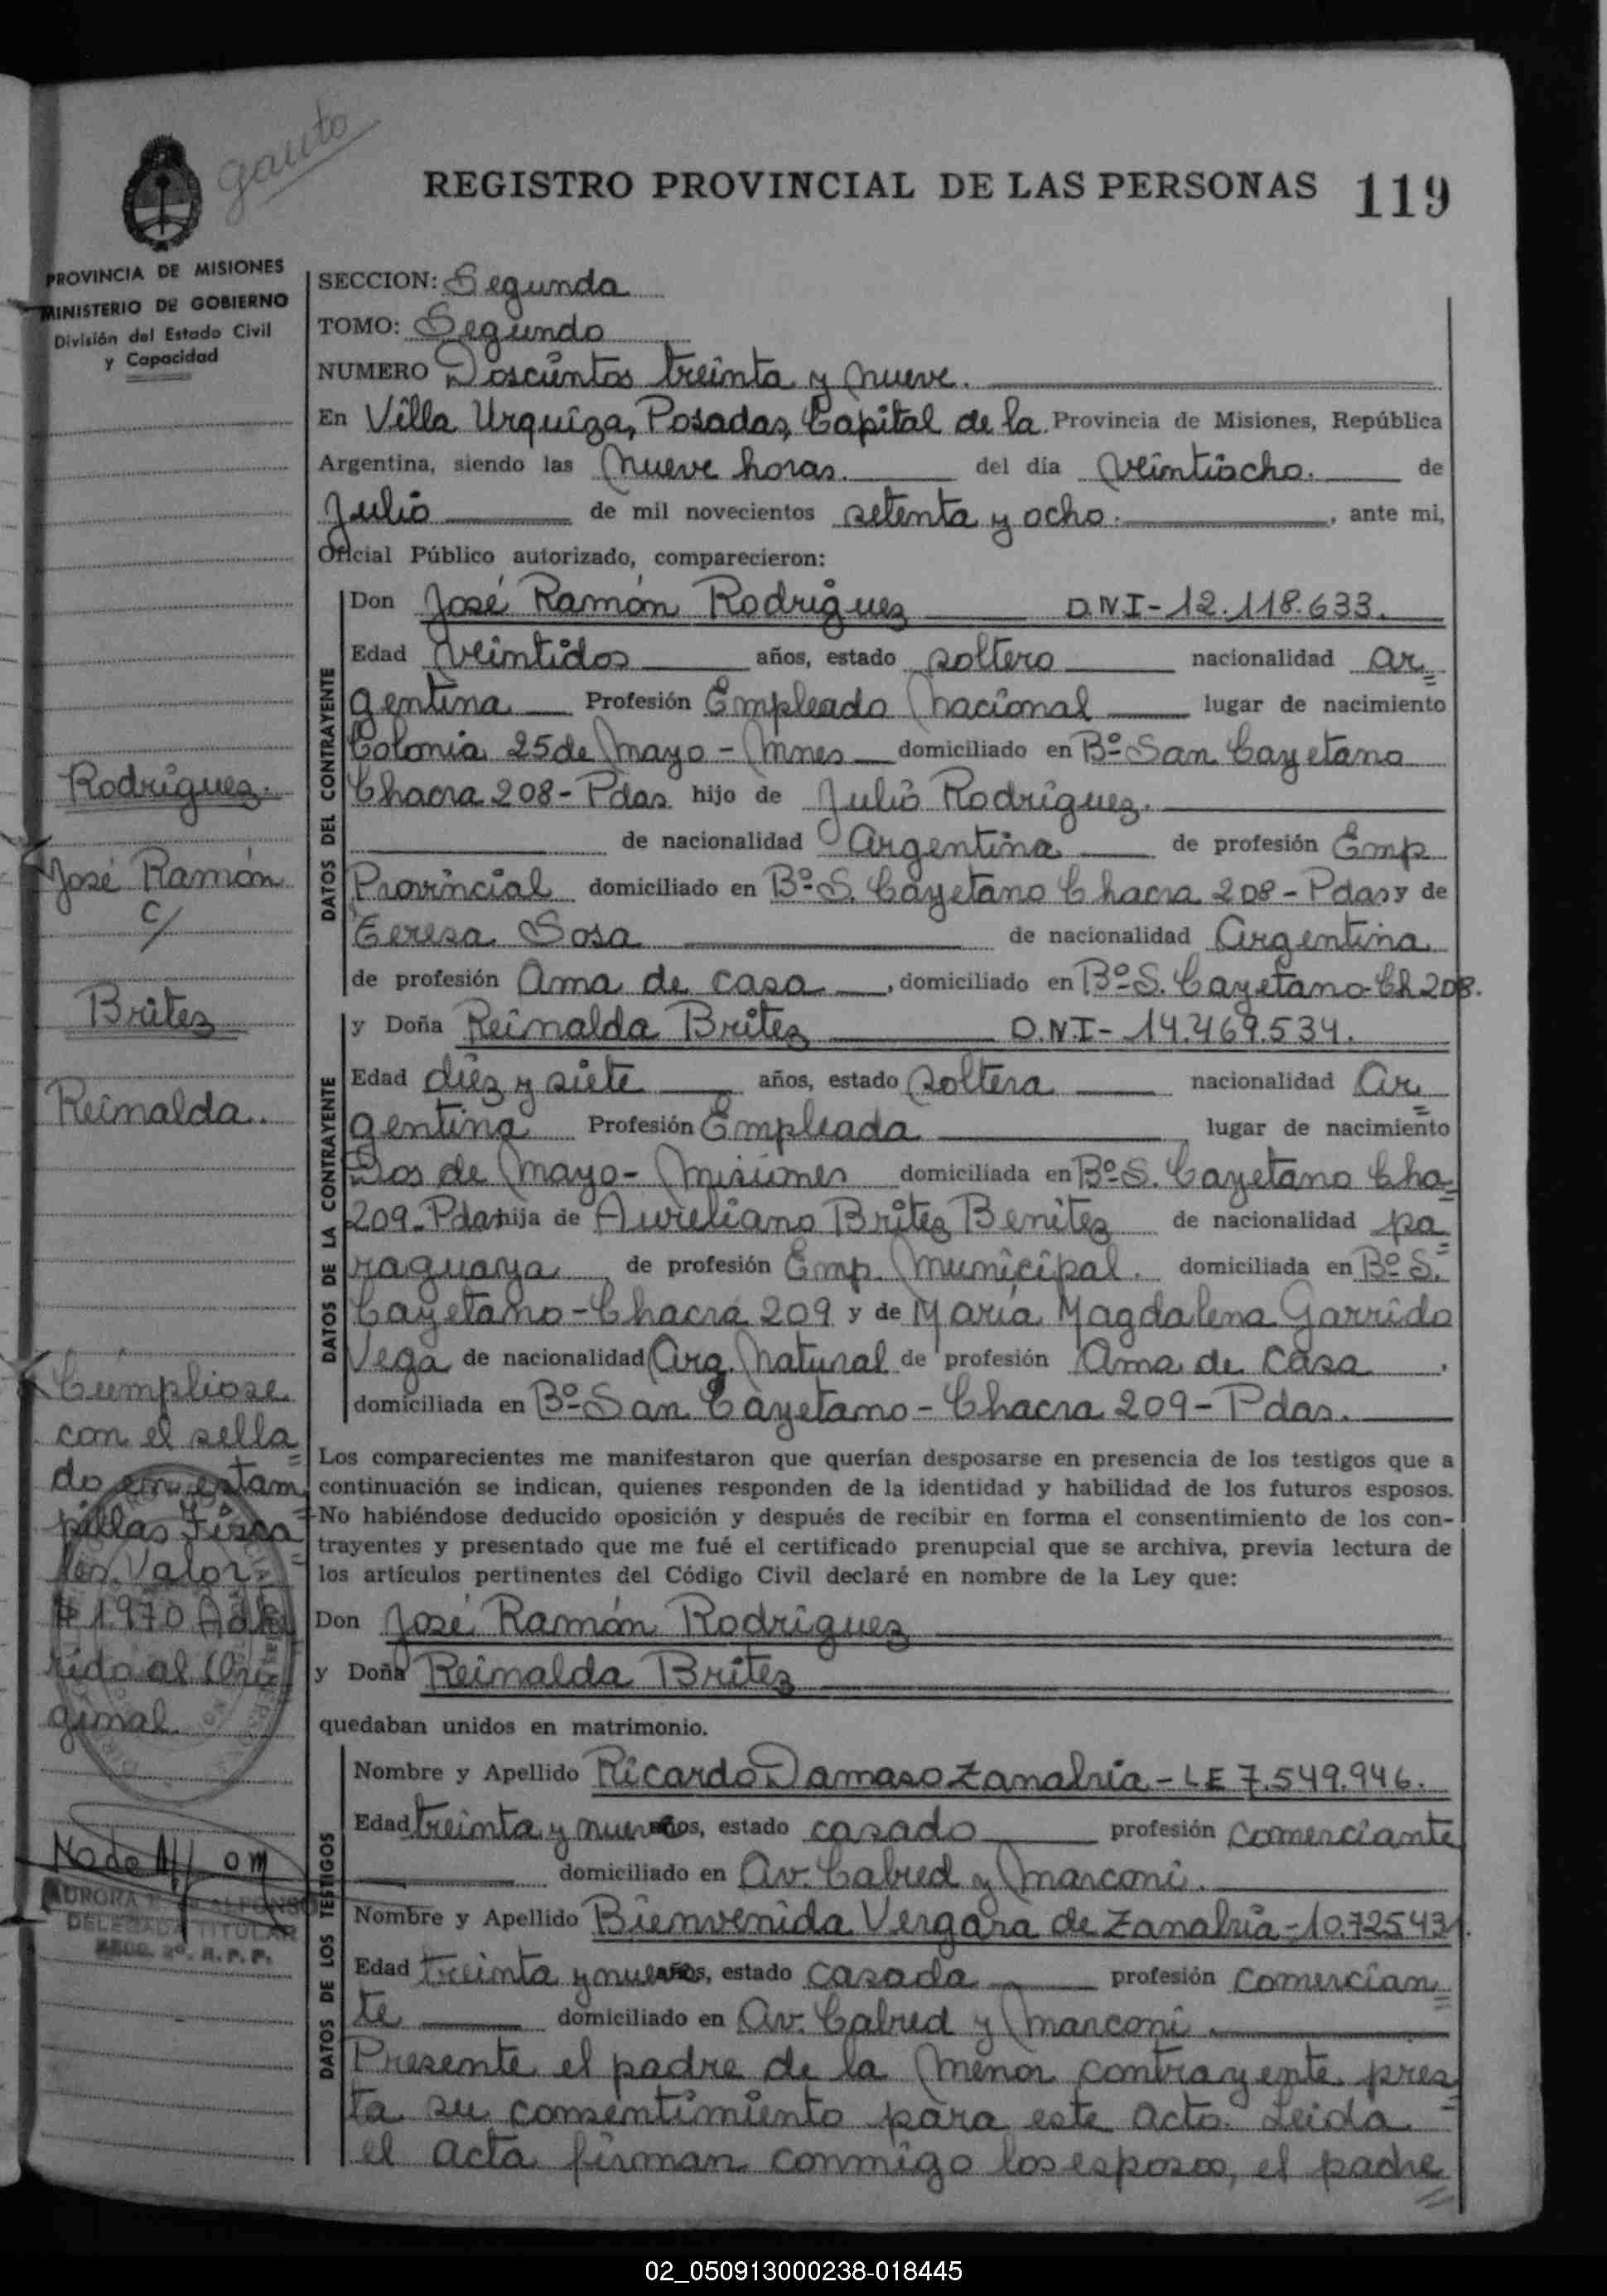 gauto
REGISTRO PROVINCIAL DE LAS PERSONAS 119
PROVINCIA DE MISIONES
MINISTERIO DE GOBIERNO
División del Estado Civil
y Capacidad
SECCION: Segunda
TOMO: Segundo
NUMERO Doscientos treinta y nueve.
En Villa Urquiza, Posadas, Capital de la Provincia de Misiones, República
Argentina, siendo las nueve horas. del día veintiocho. de
Julio de mil novecientos setenta y ocho. , ante mi,
Oficial Público autorizado, comparecieron:
DATOS DEL CONTRAYENTE
Don José Ramón Rodriguez D.N.I- 12.118.633.
Edad veintidos años, estado soltero nacionalidad ar=
gentina Profesión Empleado nacional lugar de nacimiento
Colonia 25 de mayo - Mnes domiciliado en Bº San Cayetano
Chacra 208 - Pdas hijo de Julio Rodriguez.
de nacionalidad Argentina de profesión Emp
Provincial domiciliado en Bº S. Cayetano Chacra 208 - Pdas y de
Teresa Sosa de nacionalidad Argentina
de profesión Ama de casa , domiciliado en Bº S. Cayetano-Ch 208.
DATOS DE LA CONTRAYENTE
y Doña Reinalda Britez D.N.I- 14.469.534.
Edad diez y siete años, estado soltera nacionalidad Ar=
gentina Profesión Empleada lugar de nacimiento
Dos de mayo - misiones domiciliada en Bº S. Cayetano Cha=
209-Pdas hija de Aureliano Britez Benitez de nacionalidad pa=
raguaya de profesión Emp. Municipal. domiciliada en Bº S.
Cayetano - Chacra 209 y de María Magdalena Garrido
Vega de nacionalidad Arg. Natural de profesión Ama de casa ,
domiciliada en Bº San Cayetano - Chacra 209 - Pdas.
Los comparecientes me manifestaron que querían desposarse en presencia de los testigos que a
continuación se indican, quienes responden de la identidad y habilidad de los futuros esposos.
No habiéndose deducido oposición y después de recibir en forma el consentimiento de los con-
trayentes y presentado que me fué el certificado prenupcial que se archiva, previa lectura de
los artículos pertinentes del Código Civil declaré en nombre de la Ley que:
Don José Ramón Rodriguez
y Doña Reinalda Britez
quedaban unidos en matrimonio.
DATOS DE LOS TESTIGOS
Nombre y Apellido Ricardo Damaso Zanabria - LE 7.549.946.
Edad treinta y nueve años, estado casado profesión comerciante
domiciliado en Av. Cabred y Marconi.
Nombre y Apellido Bienvenida Vergara de Zanabria - 10.725431.
Edad treinta y nueve años, estado casada profesión comercian=
te domiciliado en Av. Cabred y Marconi.
Presente el padre de la menor contrayente pres=
ta su consentimiento para este acto. Leida
el acta firman conmigo los esposos, el padre=
Rodríguez.
José Ramón
c/
Britez
Reinalda.
Cúmpliose
con el sella=
do en estam
pillas Fisca=
les. Valor
$ 1970 Adhe
rido al Ori
ginal.
DELEGADA TITULAR
SECC. 2º. R. P. P.
02_050913000238-018445